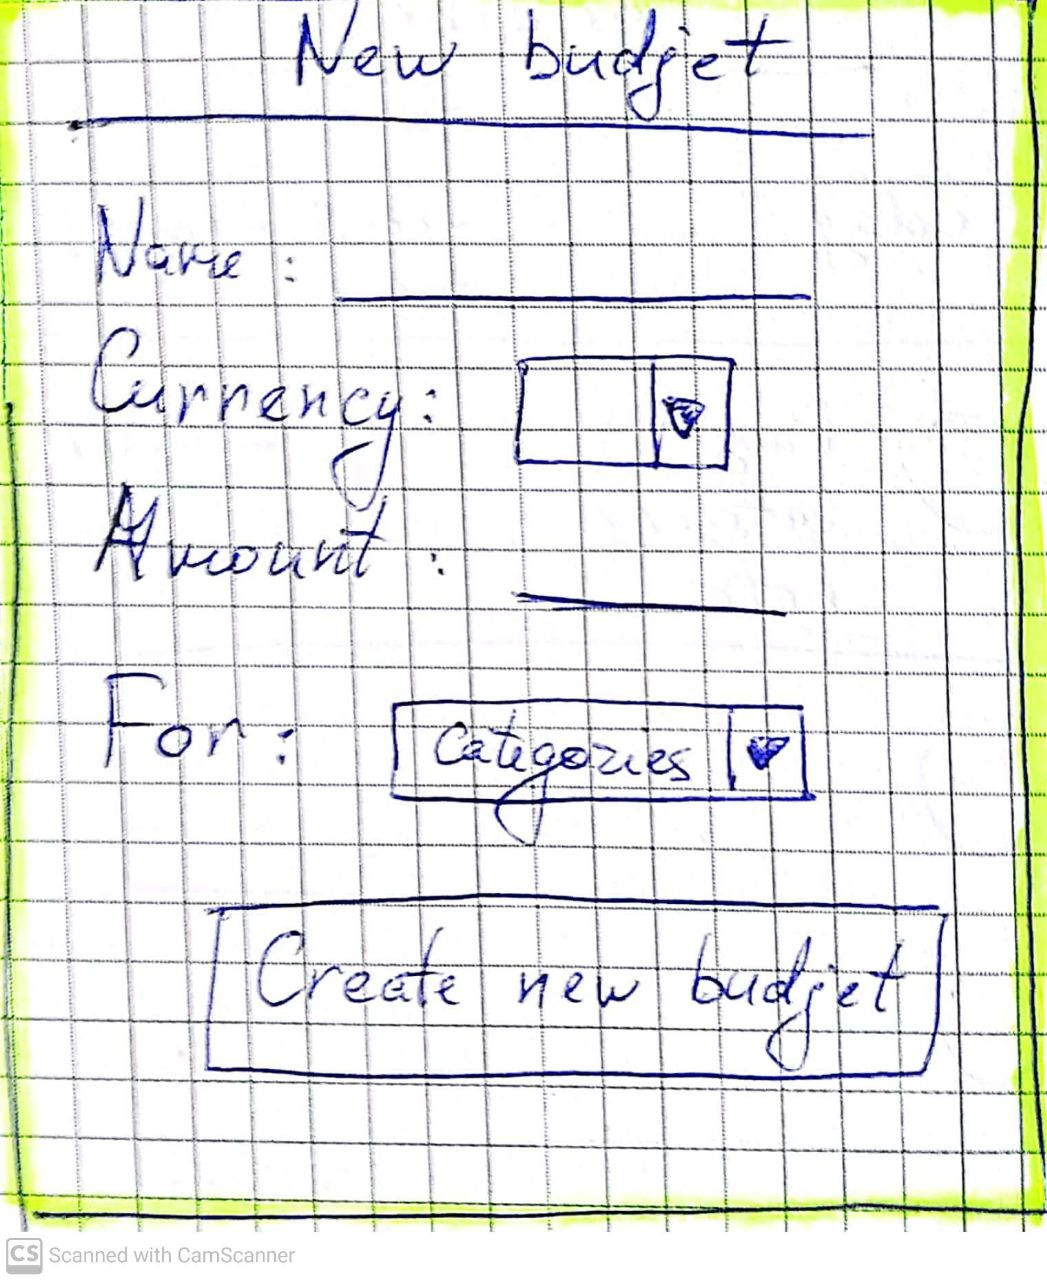 New budjet
Name :
Currency:
Amount :
For: Categories
Create new budjet
CS Scanned with CamScanner